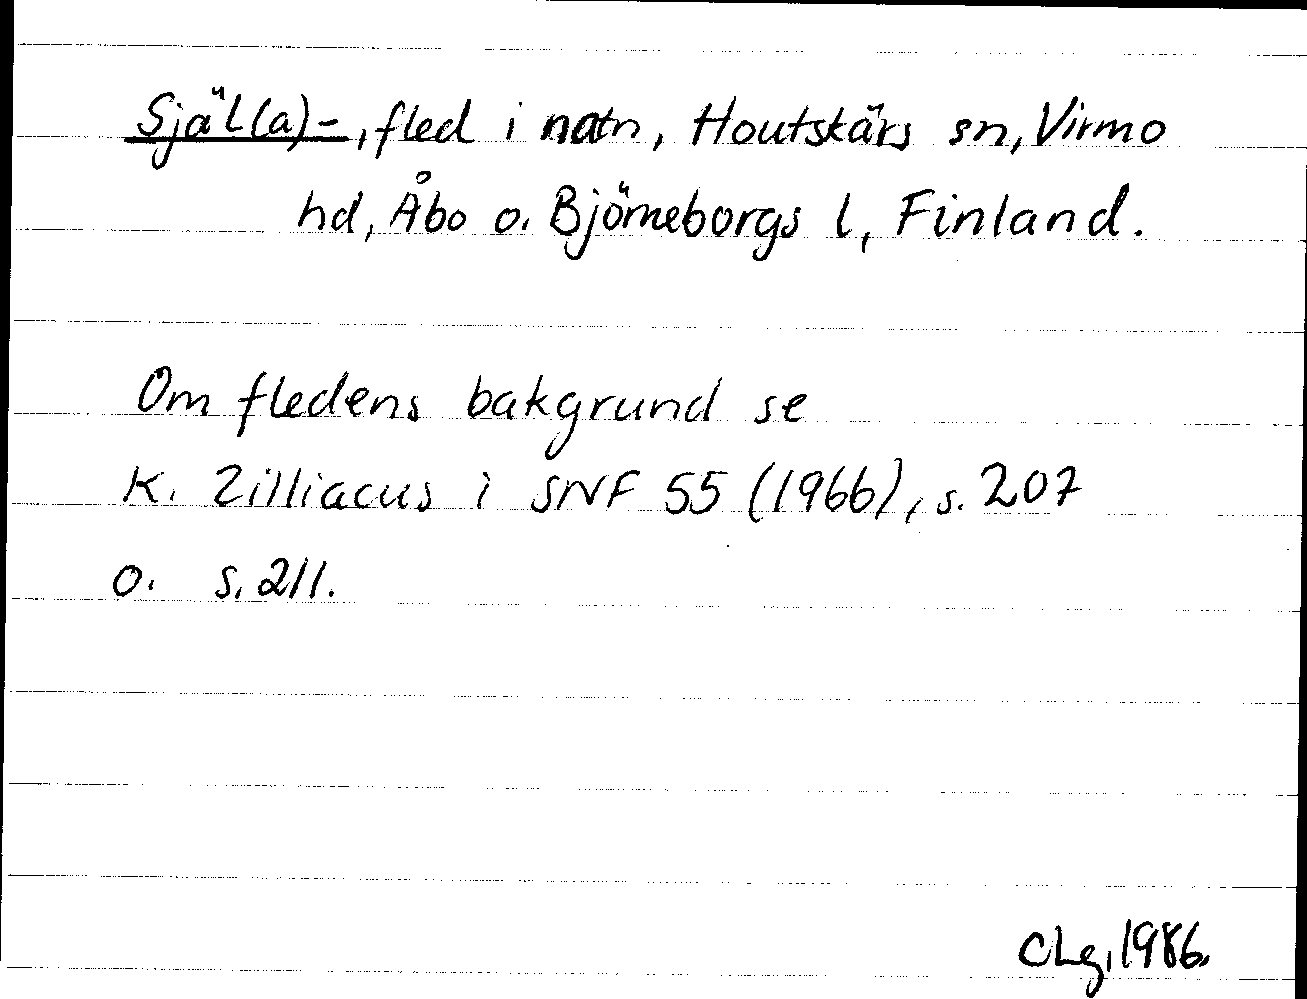 Själ(a)-, fled i natn, Houtskärs sn, Virmo
hd, Åbo o. Björneborgs l, Finland.
Om fledens bakgrund se
K. Zilliacus i SNF 55 (1966), s. 207
o. s. 211.
CLg, 1986.